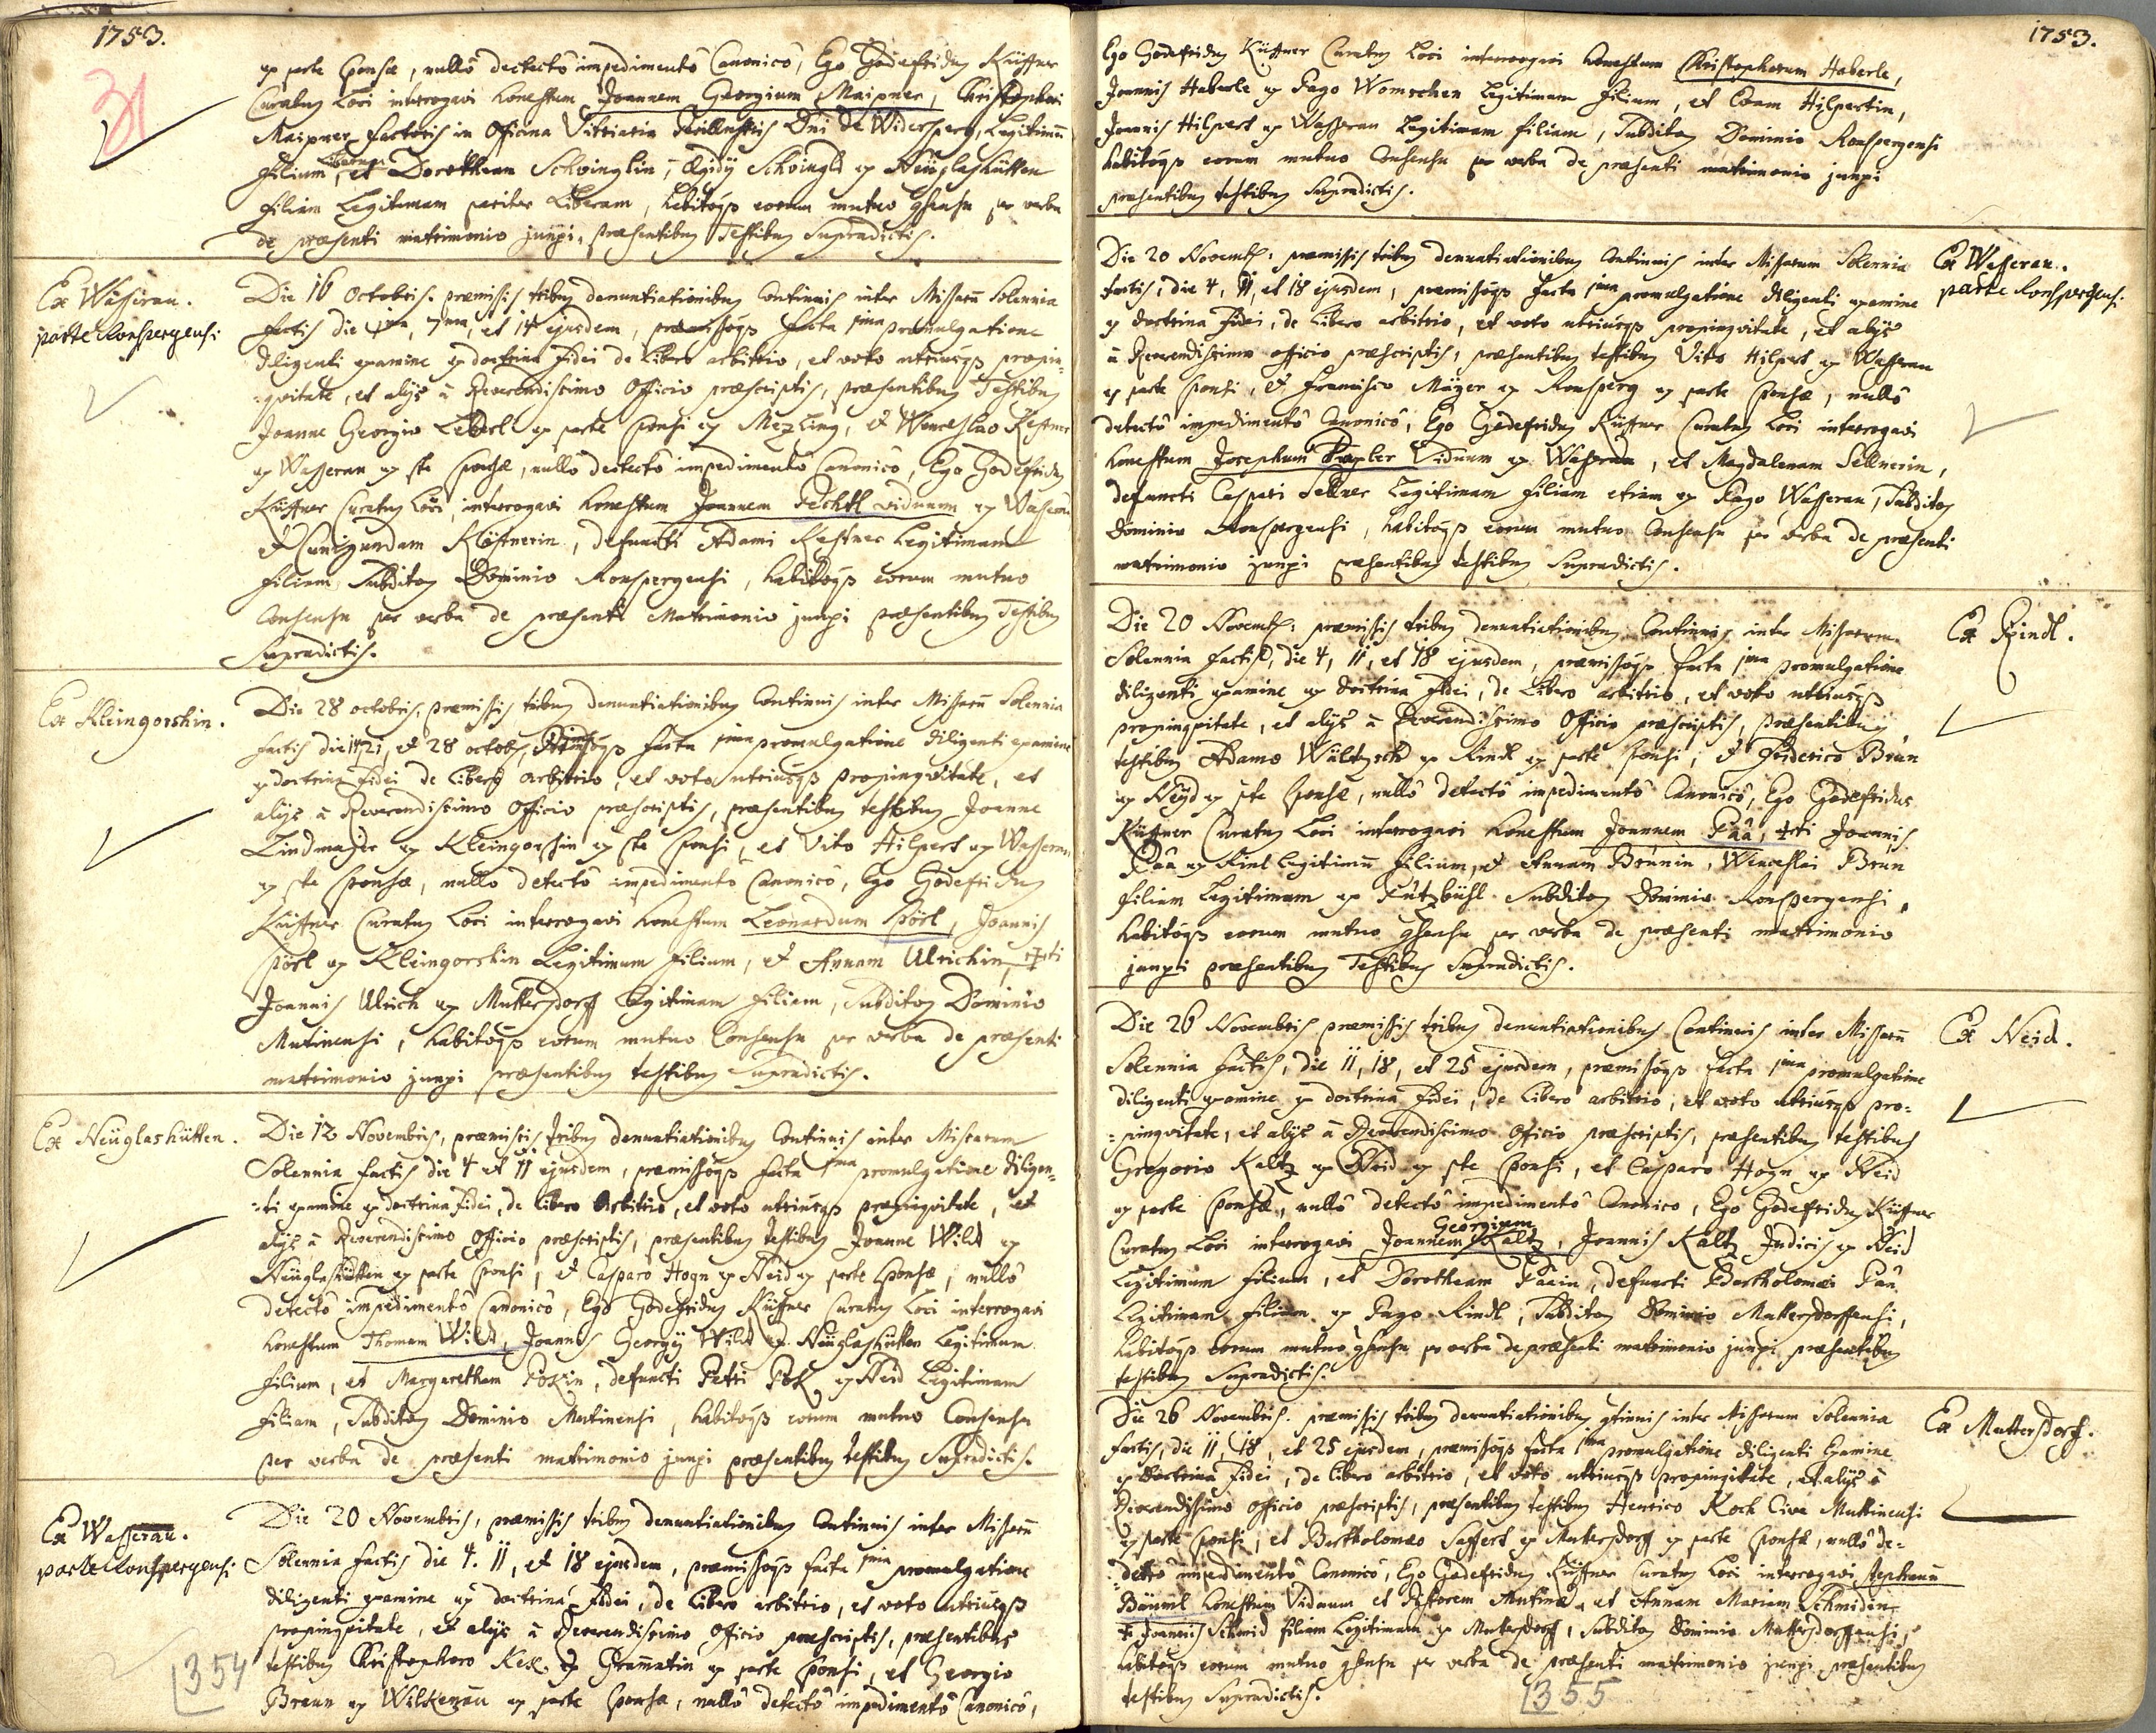 1753.
31
ex parte Sponsæ, nullô dectectô impedimentô Canonicô, Ego Godefridus Küffner
Curatus Loci interrogavi honestum Joannem Georgium Maixner, Christophori
Maixner Factoris in Officina Vitriaria Dni de Widersperg, Legitimū
Filium, Liberum et Dorotheam Schvinglin, Ægidÿ Schvingls ex Neüglashütten
Filiam Legitimam pariter Liberam, habitoqꝫ eorum mutuo gsensu per verba
de præsenti matrimonio junxi, præsentibus Testibus Supradictis.
Ex Wasserau.
parte Ronspergensi
Die 16 Octobris. præmissis tribus denuntiationibus Continuis inter Missarū Solennia
factis die 7ma, et 14 ejusdem, præmissoqꝫ facta 1ma promulgatione
diligenti examine ex doctrina Fidei de Libero arbitrio, et voto utriusqꝫ propin=
=qvitate, et alÿs à Reverendissimo Officio præscriptis, præsentibus Testibus
Joanne Georgio Leberl ex parte Sponsi ex Mezling, et Wenceslao Kestner
ex Wasserau ex pte Sponsæ, nullo dectectô impedimentô Canonicô, Ego Godefridus
Küffner Curatus Loci, interrogavi honestum Joannem Pechtl viduum ex Wasserau
et Cunigundam Köstnerin, defuncti Adami Kestner Legitimam
Filiam, Subditos Dominio Ronspergensi, habitoqꝫ eorum mutuo
Consensu per verba de præsenti Matrimonio junxi præsentibus Testibus
Supradictis.
Ex Kleingorshin.
Die 28 octobris, præmissis tribus denuntiationibus Continuis inter Missarū Solennia
factis die 14, 21, et 28 octobr, facta 1ma promulgatione diligenti examine
ex doctrina Fidei de Libero arbitrio, et voto utriusqꝫ propinqvitate, et
alÿs à Reverendissimo Officio præscriptis, præsentibus testibus Joanne
Lindmajer ex Kleingorshin ex pte Sponsi, et Vito Hilpert ex Wasserau
ex pte Sponsæ, nullo detectô impedimentô Canonicô, Ego Godefridus
Küffner Curatus Loci interrogavi honestum Leonardum Spörl, Joannis
Spörl ex Kleingorshin Legitimum filium, et Annam Ulrichin, †cti
Joannis Ulrich ex Muttersdorff Legitimam filiam, Subditos Dominio
Mutinensi, habitoqꝫ eorum mutuo Consensu per verba de præsenti
matrimonio junxi præsentibus testibus supradictis.
Ex Neüglashütten.
Die 12 Novembris, præmissis tribus denuntiationibus Continuis inter Missarum
Solennia factis die 4 et 11 ejusdem, præmissoqꝫ facta 1ma promulgatione diligen=
=ti examine ex doctrina Fidei, de libero Arbitrio, et voto utriusqꝫ propinqvitate, et
alÿs à Reverendissimo Officio præscriptis, præsentibus testibus Joanne Wild ex
Neüglashütten ex parte Sponsi, et Casparo Hogn ex Neid ex parte Sponsæ, nullô
detectô impedimentô Canonicô, Ego Godefridus Küffner Curatus Loci interrogavi
honestum Thomam Wild, Joannis Georgÿ Wild ex Neüglashütten Legitimum
filium, et Margaretham Pökin, defuncti Petri Pök ex Neid Legitimam
filiam, Subditos Dominio Mutinensi, habitoqꝫ eorum mutuo Consensu
per verba de præsenti matrimonio junxi præsentibus testibus Supradictis.
Ex Wasserau.
parte Ronspergensi
Die 20 Novembris, præmissis tribus denuntiationibus Continuis inter Missarū
Solennia factis die 4. 11, et 18 ejusdem, præmissoqꝫ facta 1ma promulgatione
diligenti examine ex doctrina Fidei, de Libero arbitrio, et voto utriusqꝫ
propinqvitate, et alÿs à Reverendissimo Officio præscriptis, præsentibus
testibus Christophoro Kex ex Gramatin ex parte Sponsi, et Georgio
Braun ex Wilkenau ex parte Sponsæ, nullô detectô impedimentô Canonicô,
354
1753.
Ego Godefridus Küffner Curatus Loci interrogavi honestum Christophorum Haberle,
Joannis Haberle ex Pago Womschen Legitimum filium, et Evam Hilpertin,
Joannis Hilpert ex Wasserau Legitimam filiam, Subditos Dominio Ronspergensi
habitoqꝫ eorum mutuo Consensu per verba de præsenti matrimonio junxi
præsentibus testibus Supradictis.
Die 20 Novembr: præmissis tribus denuntiationibus Continuis inter Missarum Solennia
factis, die 4, 11, et 18 ejusdem, præmissoqꝫ facta 1ma promulgatione diligenti examine
ex doctrina Fidei, de Libero arbitrio, et voto utriusqꝫ propinqvitate, et alÿs
à Reverendissimo officio præscriptis, præsentibus testibus Vito Hilpert ex Wasserau
ex parte Sponsi, et Francisco Mayer ex Ronsperg ex parte Sponsæ, nullô
detectô impedimentô Canonicô, Ego Godefridus Küffner Curatus Loci interrogavi
honestum Josephum Viduum ex Wasserau, et Magdalenam Sellnerin,
defuncti Caspari Sellner Legitimam filiam etiam ex Pago Wasserau, Subditos
Dominio Ronspergensi, habitoqꝫ eorum mutuo Consensu per verba de præsenti
matrimonio junxi præsentibus testibus Supradictis.
Ex Wasserau.
parte Ronspergensi.
Die 20 Novembr: præmissis tribus denuntiationibus Continuis inter Missarum
Solennia factis, die 4, 11, et 18 ejusdem, præmissoqꝫ facta 1ma promulgatione
diligenti examine ex doctrina Fidei, de Libero arbitrio, et voto utriusqꝫ
propinqvitate, et alÿs à Reverendissimo Officio præscriptis, præsentibus
testibus Adamo Wältzsch ex Rindl ex parte Sponsi, et Friderico Brun
ex Neyd ex pte Sponsæ, nullô detectô impedimentô Canonicô, Ego Godefridus
Küffner Curatus Loci interrogavi honestum Joannem Paü, †cti Joannis
Paü ex Rindl legitimū filium, et Annam Brunin, Wenceslai Brun
filiam Legitimam ex Putzbühl Subditos Dominio Ronspergensi,
habitoqꝫ eorum mutuo gsensu per verba de præsenti matrimonio
junxi præsentibus Testibus Supradictis.
Ex Rindl.
Die 26 Novembris præmissis tribus denuntiationibus Continuis inter Missarū
Solennia factis, die 11, 18, et 25 ejusdem, præmissoqꝫ facta 1ma promulgatione
diligenti examine ex doctrina Fidei, de Libero arbitrio, et voto utriusqꝫ pro=
=pinqvitate, et alÿs à Reverendissimo Officio præscriptis, præsentibus testibus
Gregorio Kaltz ex Neid ex pte Sponsi, et Casparo Hogn ex Neid
ex parte Sponsæ, nullô detectô impedimentô Canonico, Ego Godefridus Küffner
Curatus Loci interrogavi Joannem Georgium Kaltz, Joannis Kaltz Judicis ex Neid
Legitimum filium, et Dorotheam Paüin, defuncti Bartholomæi Paü
Legitimam filiam ex Pago Rindl, Subditos Dominio Muttersdorffensi,
habitoqꝫ eorum mutuo gsensu per verba de præsenti matrimonio junxi præsentibus
testibus Supradictis.
Ex Neid.
Die 26 Novembris. præmissis tribus denuntiationibus gtinuis inter Missarum Solennia
factis, die 11, 18, et 25 ejusdem, præmissoqꝫ facta 1ma promulgatione diligenti Examine
ex doctrina Fidei, de libero arbitrio, et voto utriusqꝫ propinqvitate, et alÿs à
Reverendissimo officio præscriptis, præsentibus testibus Henrico Koch Cive Muttinensi
ex parte Sponsi, et Bartholomæo Seffert ex Muttersdorff ex parte Sponsæ, nullô de=
=tectô impedimentô Canonicô, Ego Godefridus Küffner Curatus Loci interrogavi Stephanū
honestum Viduum et Pistorem Mutinæ, et Annam Mariam Schmidin,
† Joannis Schmid filiam Legitimam ex Muttersdorff, Subditos Dominio Muttersdorffensi,
habitoqꝫ eorum mutuo gsensu per verba de præsenti matrimonio junxi præsentibus
testibus Supradictis.
Ex Muttersdorf.
355